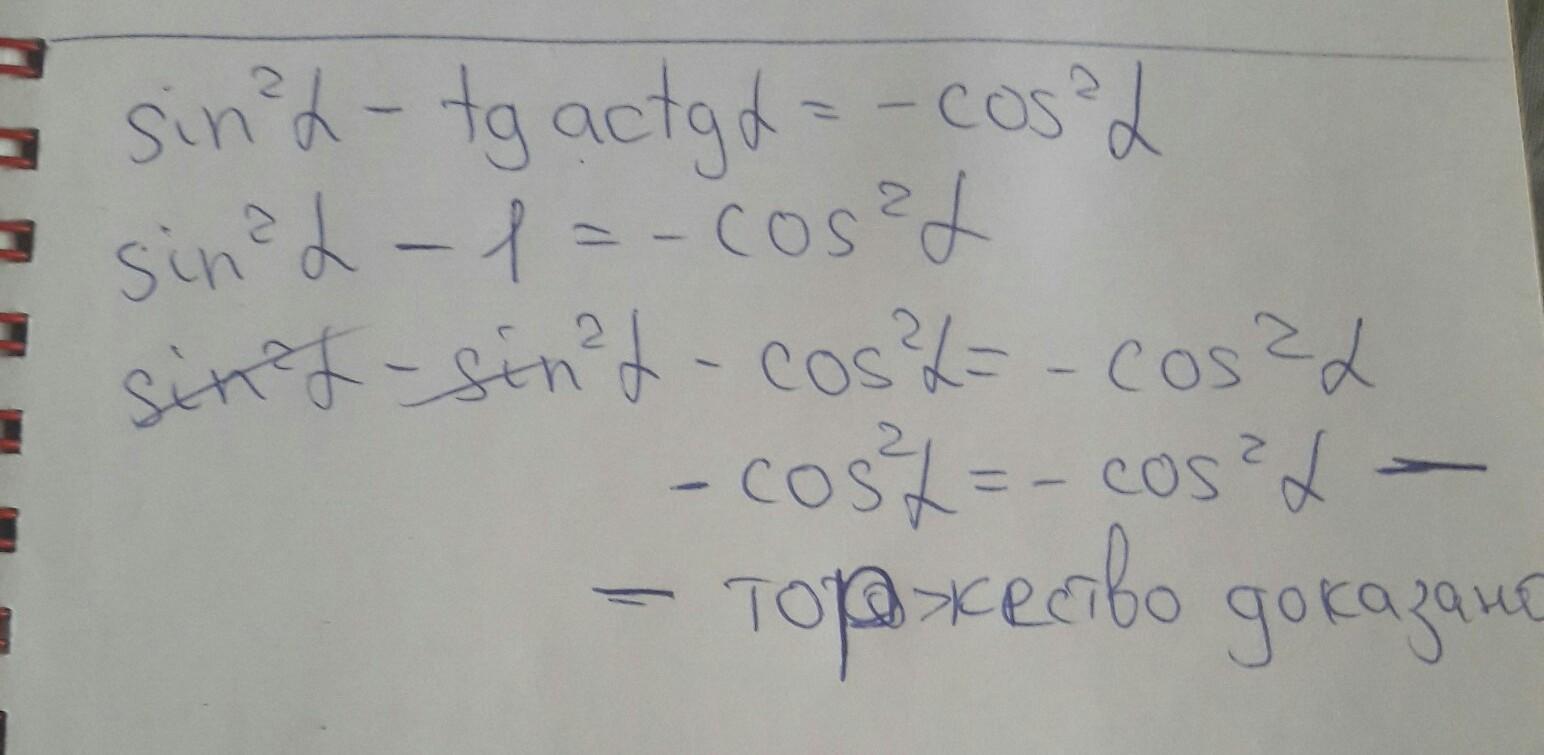 sin²α - tg αctgα = -cos²α
sin²α - 1 = -cos²α
sin²α - sin²α - cos²α = -cos²α
-cos²α = -cos²α —
— тожество доказано